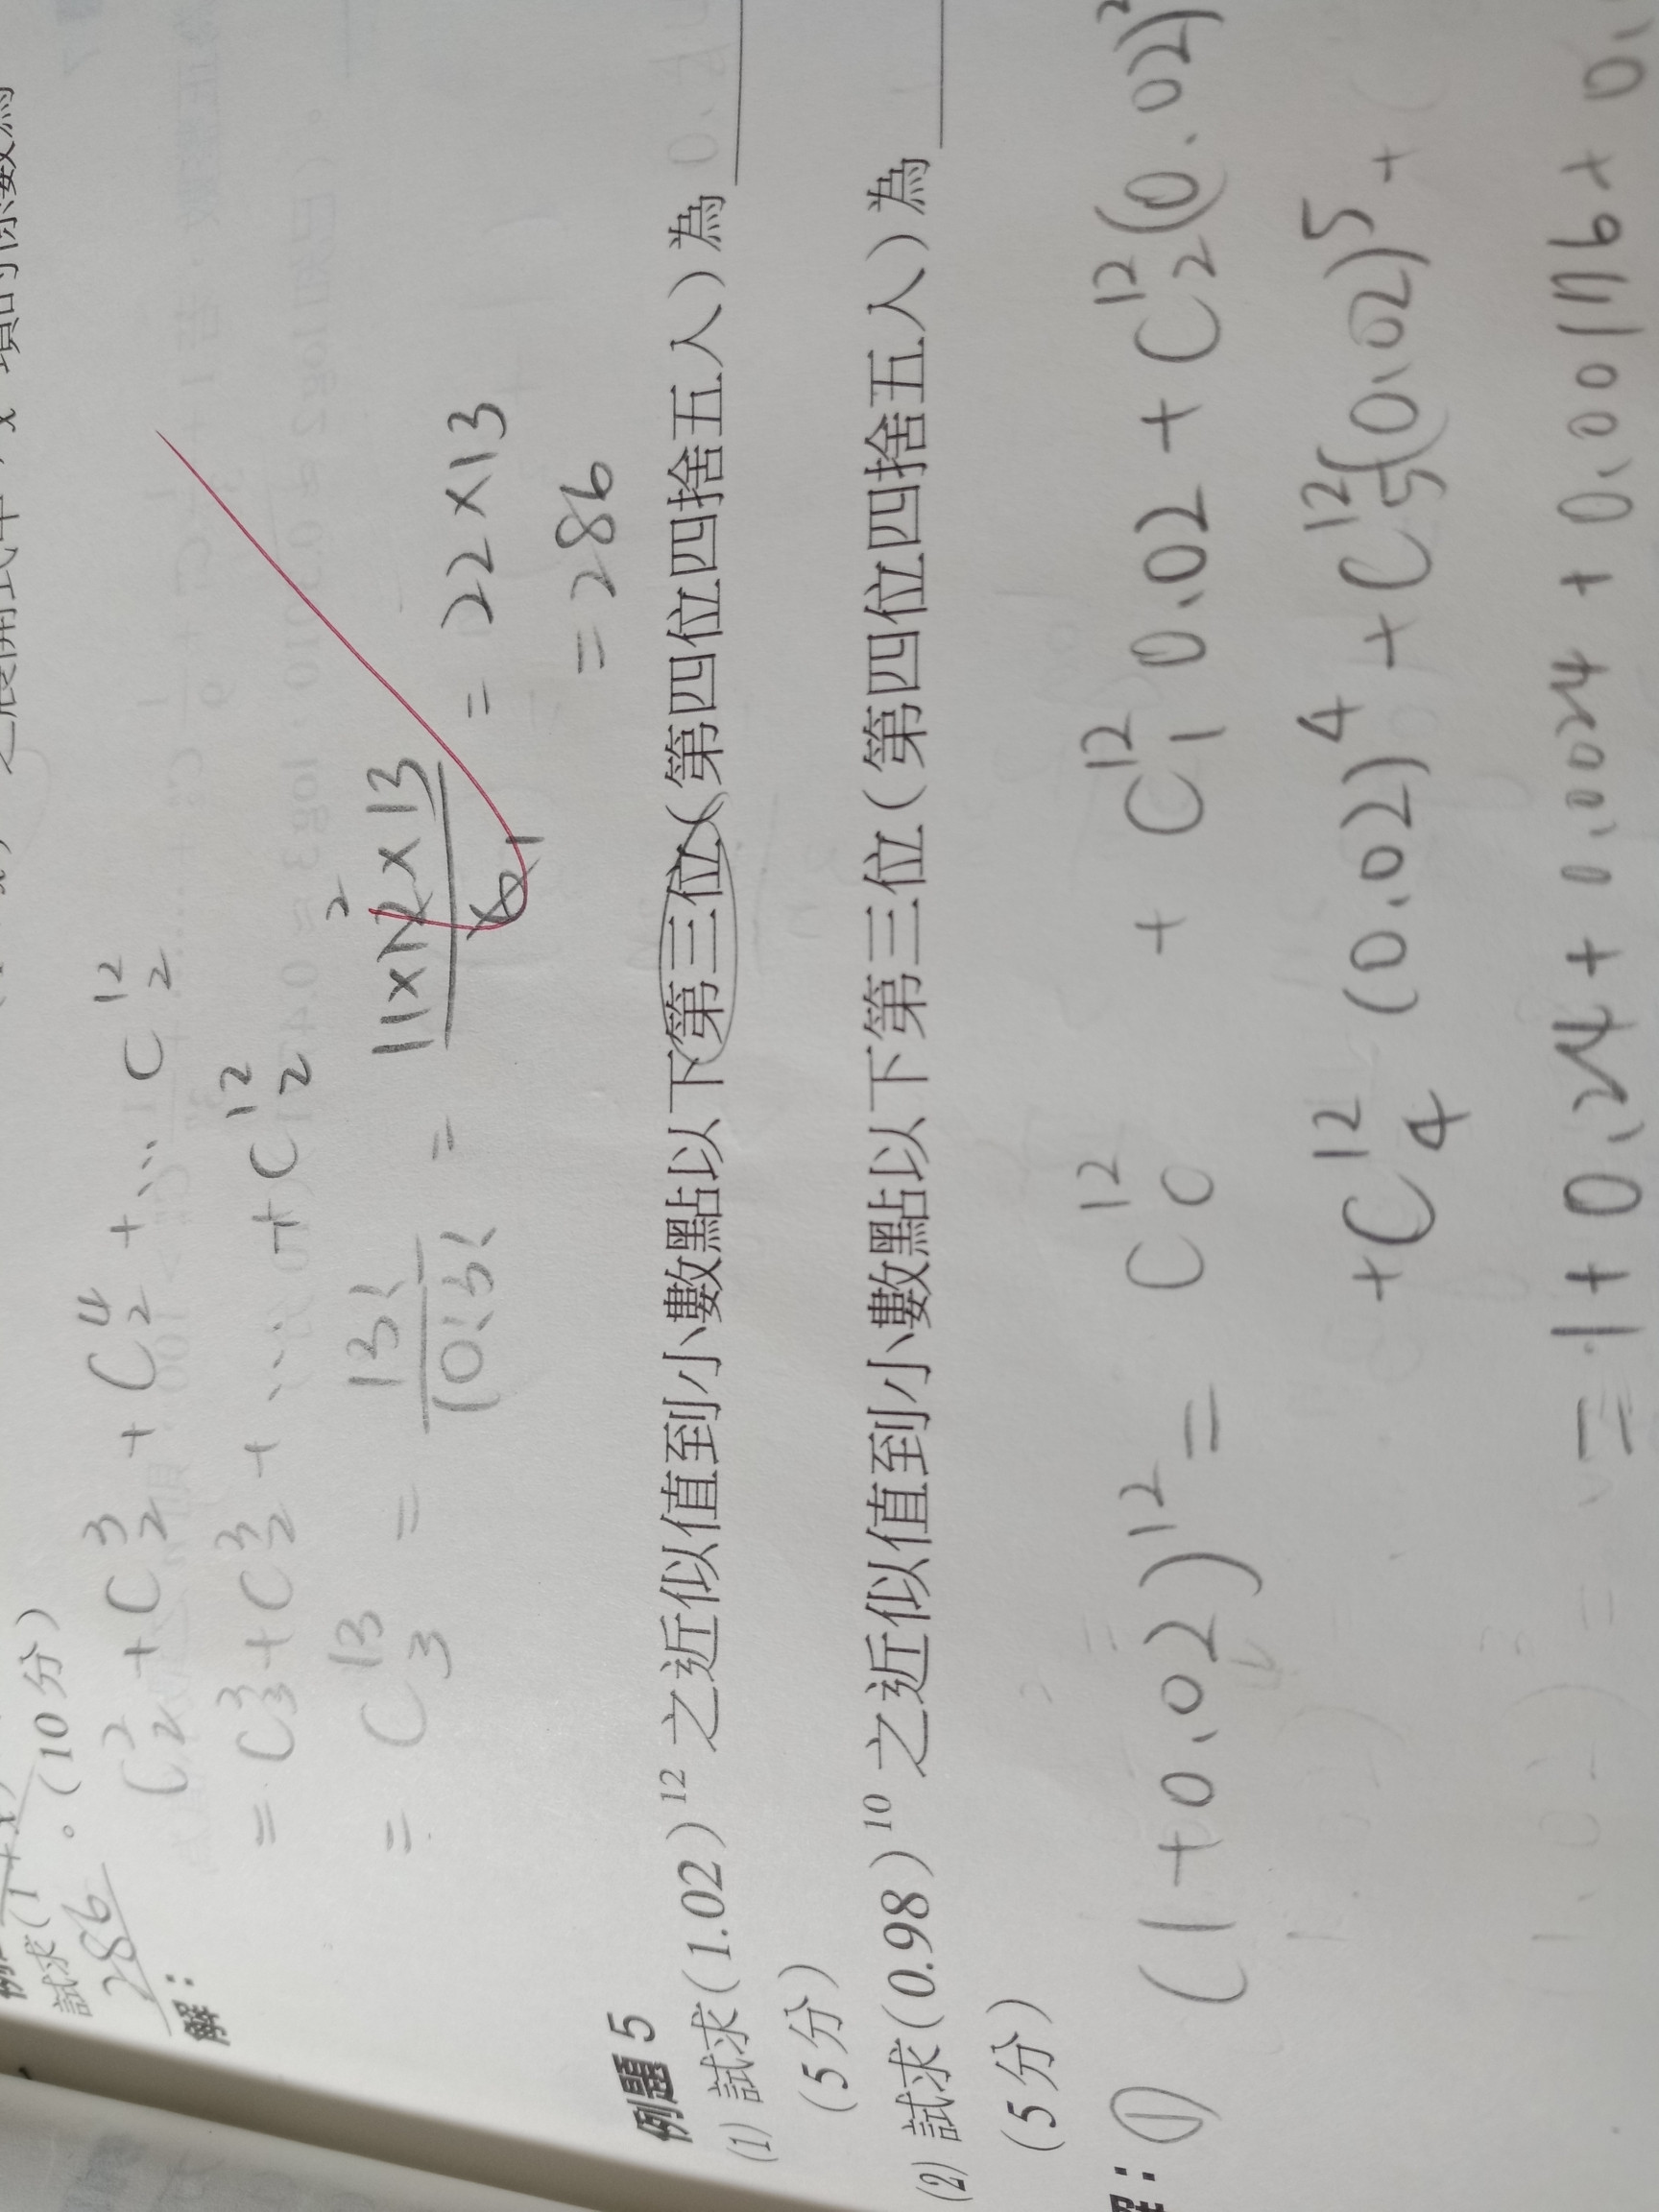 試求(1
286 。(10分)
解：
C²₂ + C³₂ + C⁴₂ + ... C¹²₂
= C³₃ + C³₂ + ... + C¹²₂
= C¹³₃ = 13!/10!3! = 11×12×13/6 = 22×13
= 286
例題 5
(1) 試求(1.02)¹² 之近似值到小數點以下第三位(第四位四捨五入)為
(5分)
(2) 試求(0.98)¹⁰ 之近似值到小數點以下第三位(第四位四捨五入)為
(5分)
解：① (1+0.02)¹² = C¹²₀ + C¹²₁ 0.02 + C¹²₂(0.02)²
+C¹²₄ (0.02)⁴ + C¹²₅(0.02)⁵ +
= 1 + 0.24 + 0.0024 + 0.00176 + 0.